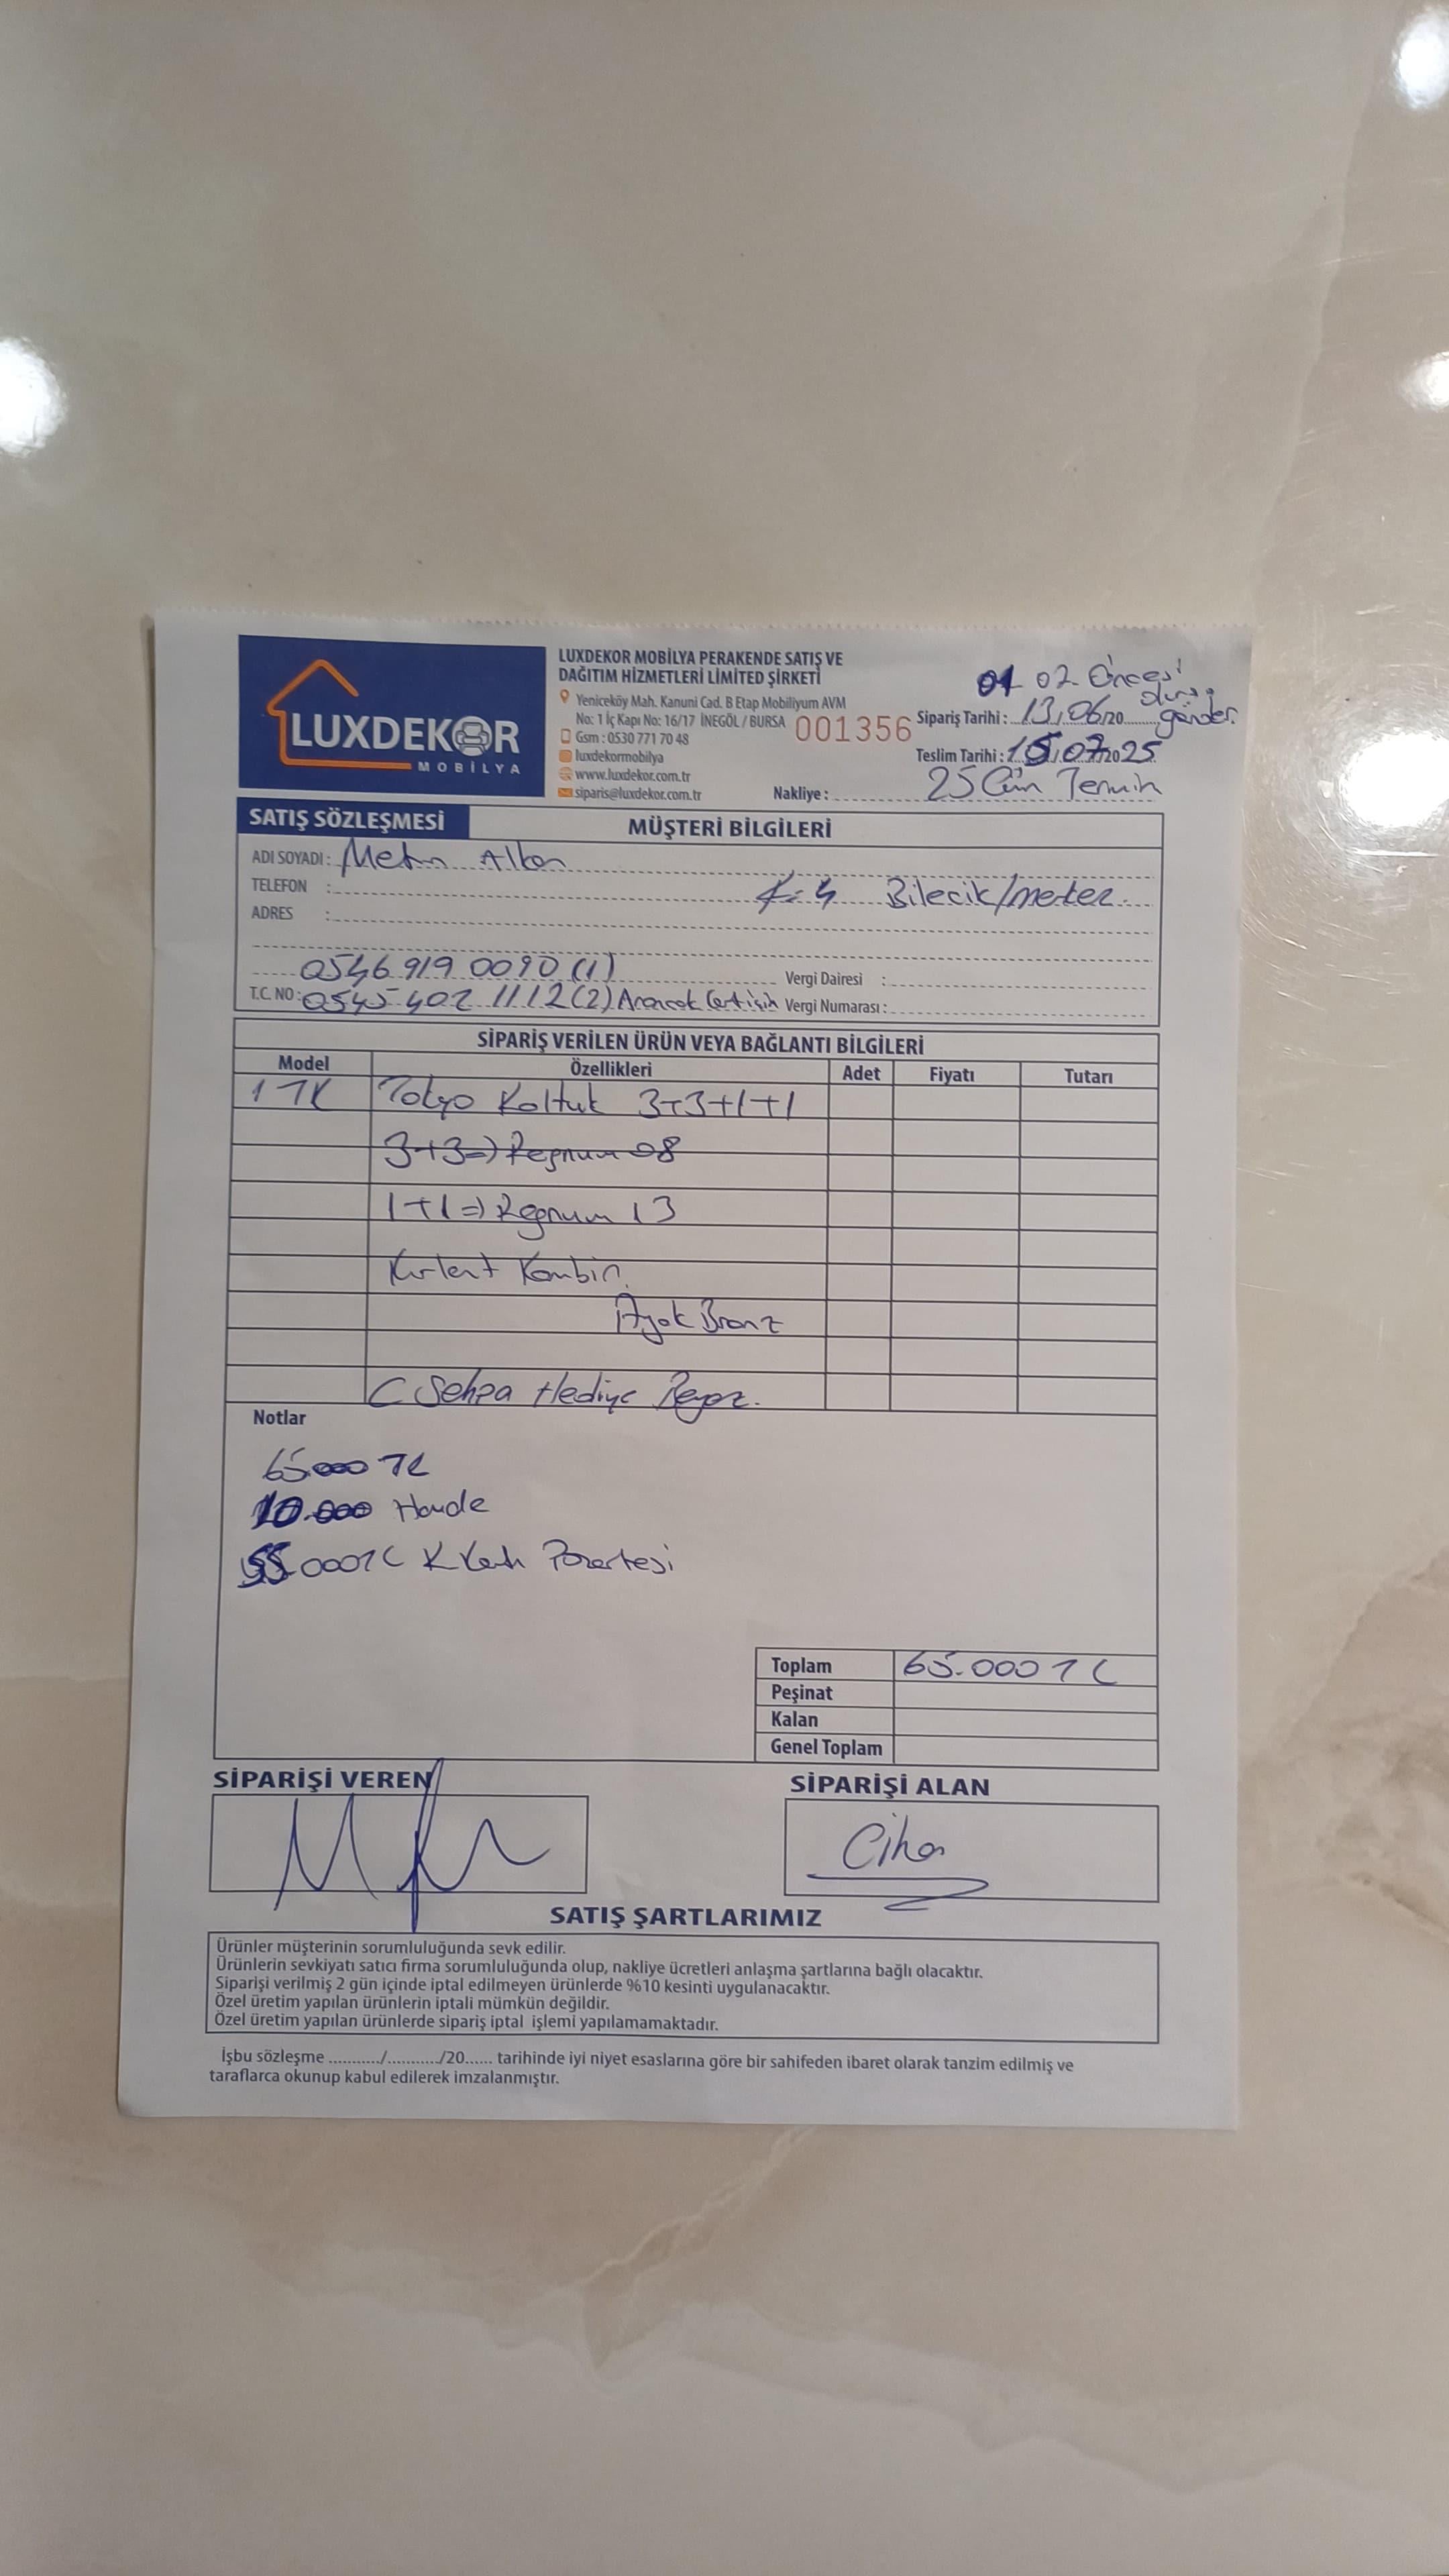 LUXDEKOR
MOBİLYA
LUXDEKOR MOBİLYA PERAKENDE SATIŞ VE
DAĞITIM HİZMETLERİ LİMİTED ŞİRKETİ
Yeniceköy Mah. Kanuni Cad. B Etap Mobiliyum AVM
No: 1 İç Kapı No: 16/17 İNEGÖL / BURSA
Gsm : 0530 771 70 48
luxdekormobilya
www.luxdekor.com.tr
siparis@luxdekor.com.tr
001356
02 Öncesi
gönder.
Sipariş Tarihi : 13/06/20
Teslim Tarihi : 15/07/2025
Nakliye : 25 Gün Termin
SATIŞ SÖZLEŞMESİ
MÜŞTERİ BİLGİLERİ
ADI SOYADI : Metin
TELEFON :
K:4 Bilecik/merkez
ADRES :
0546 919 0090 (1)
Vergi Dairesi :
T.C. NO : 0545 402 1112 (2)
Vergi Numarası :
SİPARİŞ VERİLEN ÜRÜN VEYA BAĞLANTI BİLGİLERİ
Model Özellikleri Adet Fiyatı Tutarı
1 TK Tokyo Koltuk 3+3+1+1
3+3=> Regnum 08
1+1=> Regnum 13
Kırlent Kombin.
Ayak Bronz
C Sehpa Hediye Beyaz.
Notlar
65000 TL
10.000 Havale
55000TL K Kartı Pazartesi
Toplam 65.000 TL
Peşinat
Kalan
Genel Toplam
SİPARİŞİ VEREN
SİPARİŞİ ALAN
Cihan
SATIŞ ŞARTLARIMIZ
Ürünler müşterinin sorumluluğunda sevk edilir.
Ürünlerin sevkiyatı satıcı firma sorumluluğunda olup, nakliye ücretleri anlaşma şartlarına bağlı olacaktır.
Siparişi verilmiş 2 gün içinde iptal edilmeyen ürünlerde %10 kesinti uygulanacaktır.
Özel üretim yapılan ürünlerin iptali mümkün değildir.
Özel üretim yapılan ürünlerde sipariş iptal işlemi yapılamamaktadır.
İşbu sözleşme .........../.........../20...... tarihinde iyi niyet esaslarına göre bir sahifeden ibaret olarak tanzim edilmiş ve
taraflarca okunup kabul edilerek imzalanmıştır.